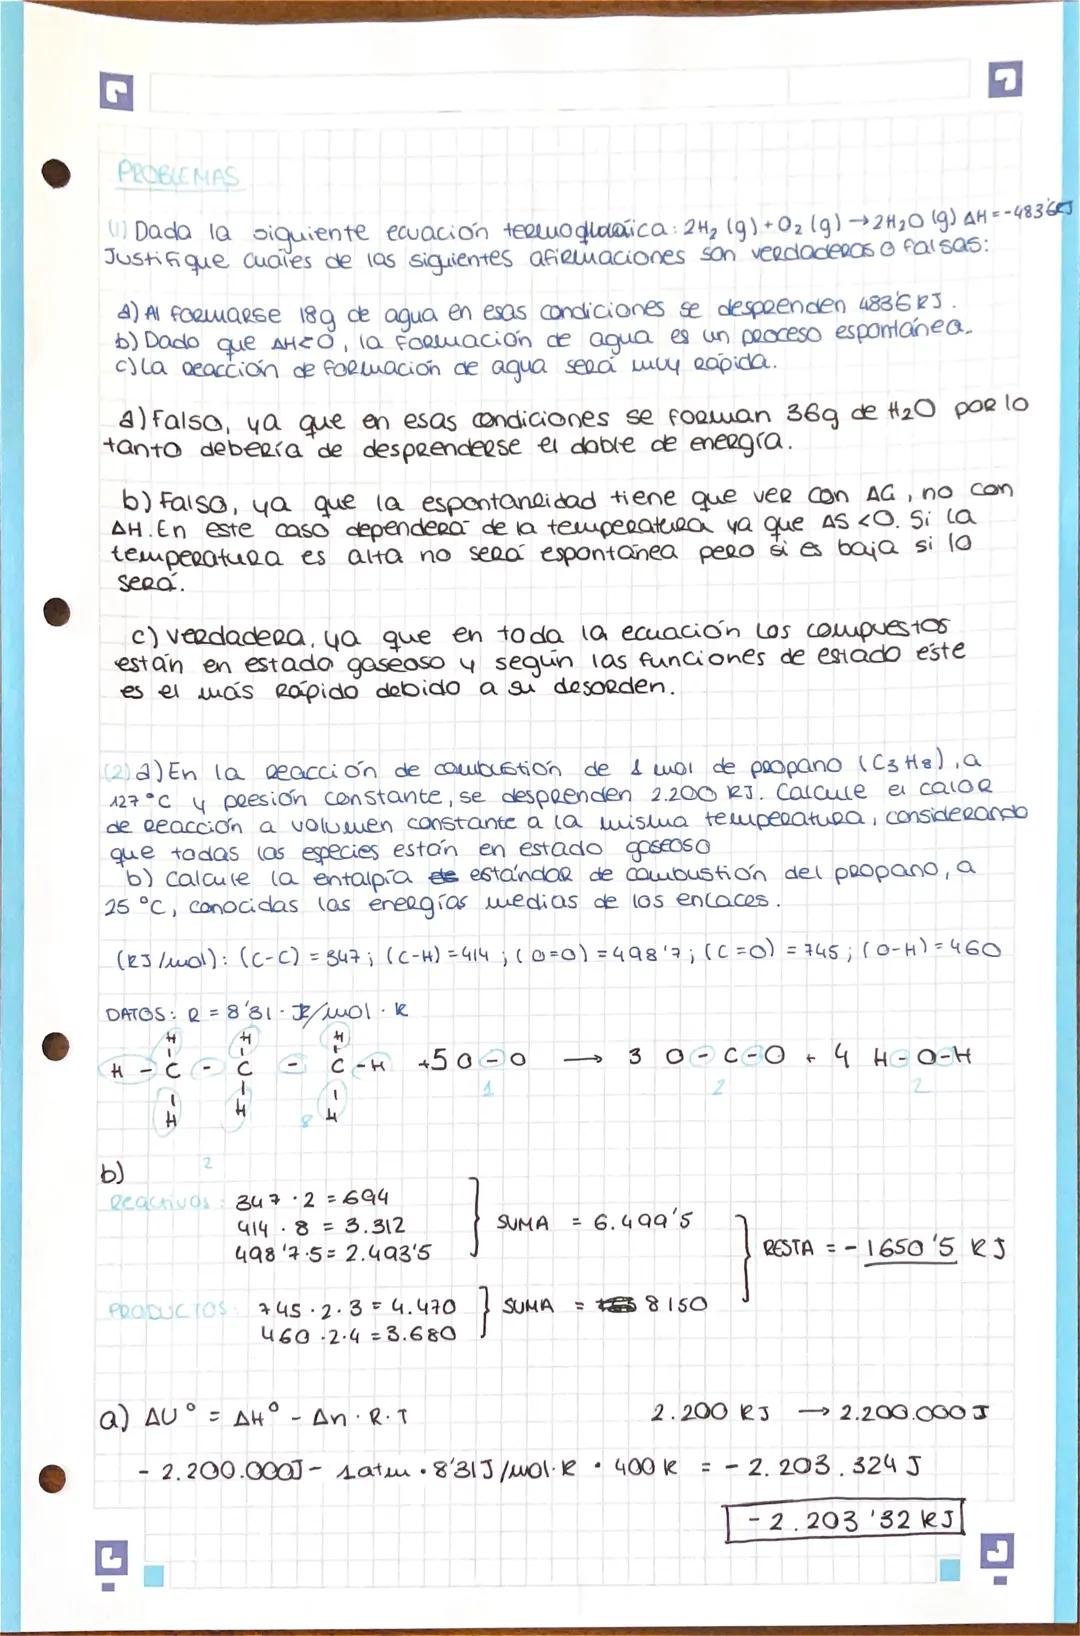 PROBLEMAS
(1) Dada la siguiente ecuación termoquímica: 2H₂ (g) + O₂ (g) → 2H₂O (g) ΔH = -483'6KJ
Justifique cuáles de las siguientes afirmaciones son verdaderas o falsas:
a) Al formarse 18g de agua en esas condiciones se desprenden 483'6 KJ.
b) Dado que ΔH<0, la formación de agua es un proceso espontánea.
c) La reacción de formación de agua será muy rápida.
a) Falso, ya que en esas condiciones se forman 36g de H₂O por lo
tanto debería de desprenderse el doble de energía.
b) Falso, ya que la espontaneidad tiene que ver con ΔG, no con
ΔH. En este caso dependerá de la temperatura ya que ΔS <0. Si la
temperatura es alta no será espontánea pero si es baja si lo
será.
c) Verdadera, ya que en toda la ecuación los compuestos
están en estado gaseoso y según las funciones de estado este
es el más rápido debido a su desorden.
(2) a) En la reacción de combustión de 1 mol de propano (C₃H₈), a
127 °C y presión constante, se desprenden 2.200 KJ. Calcule el calor
de reacción a volumen constante a la misma temperatura, considerando
que todas las especies están en estado gaseoso
b) Calcule la entalpía estándar de combustión del propano, a
25 °C, conocidas las energías medias de los enlaces.
(KJ/mol): (C-C) = 347; (C-H) = 414; (O=O) = 498'7; (C=O) = 745; (O-H) = 460
DATOS: R = 8'31 · J/mol · K
H H H
H - C - C - C - H +5 O - O → 3 O - C - O + 4 H - O - H
H H H
8 1 2 2
2
b)
Reactivos: 347 · 2 = 694
414 · 8 = 3.312
498'7 · 5 = 2.493'5
SUMA = 6.499'5
RESTA = - 1650'5 KJ
PRODUCTOS: 745 · 2 · 3 = 4.470
460 · 2 · 4 = 3.680
SUMA = 8150
a) ΔU° = ΔH° - Δn · R · T 2.200 KJ → 2.200.000 J
- 2.200.000J - 1atm · 8'31J/mol·K · 400 K = - 2.203.324 J
- 2.203'32 KJ